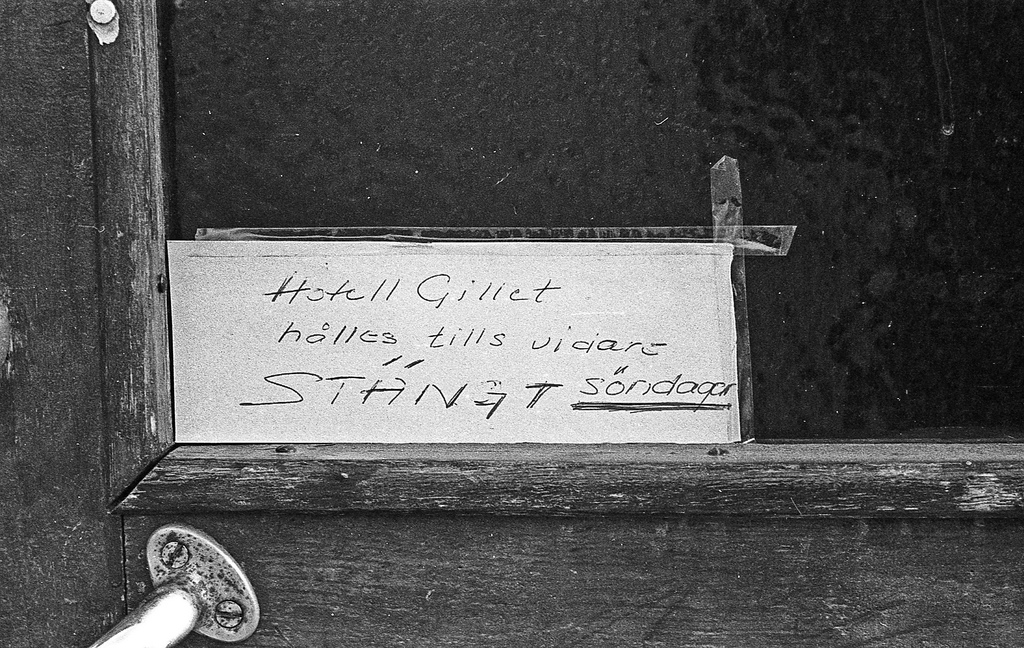 Hotell Gillet
hålles tills vidare
STÄNGT söndagar